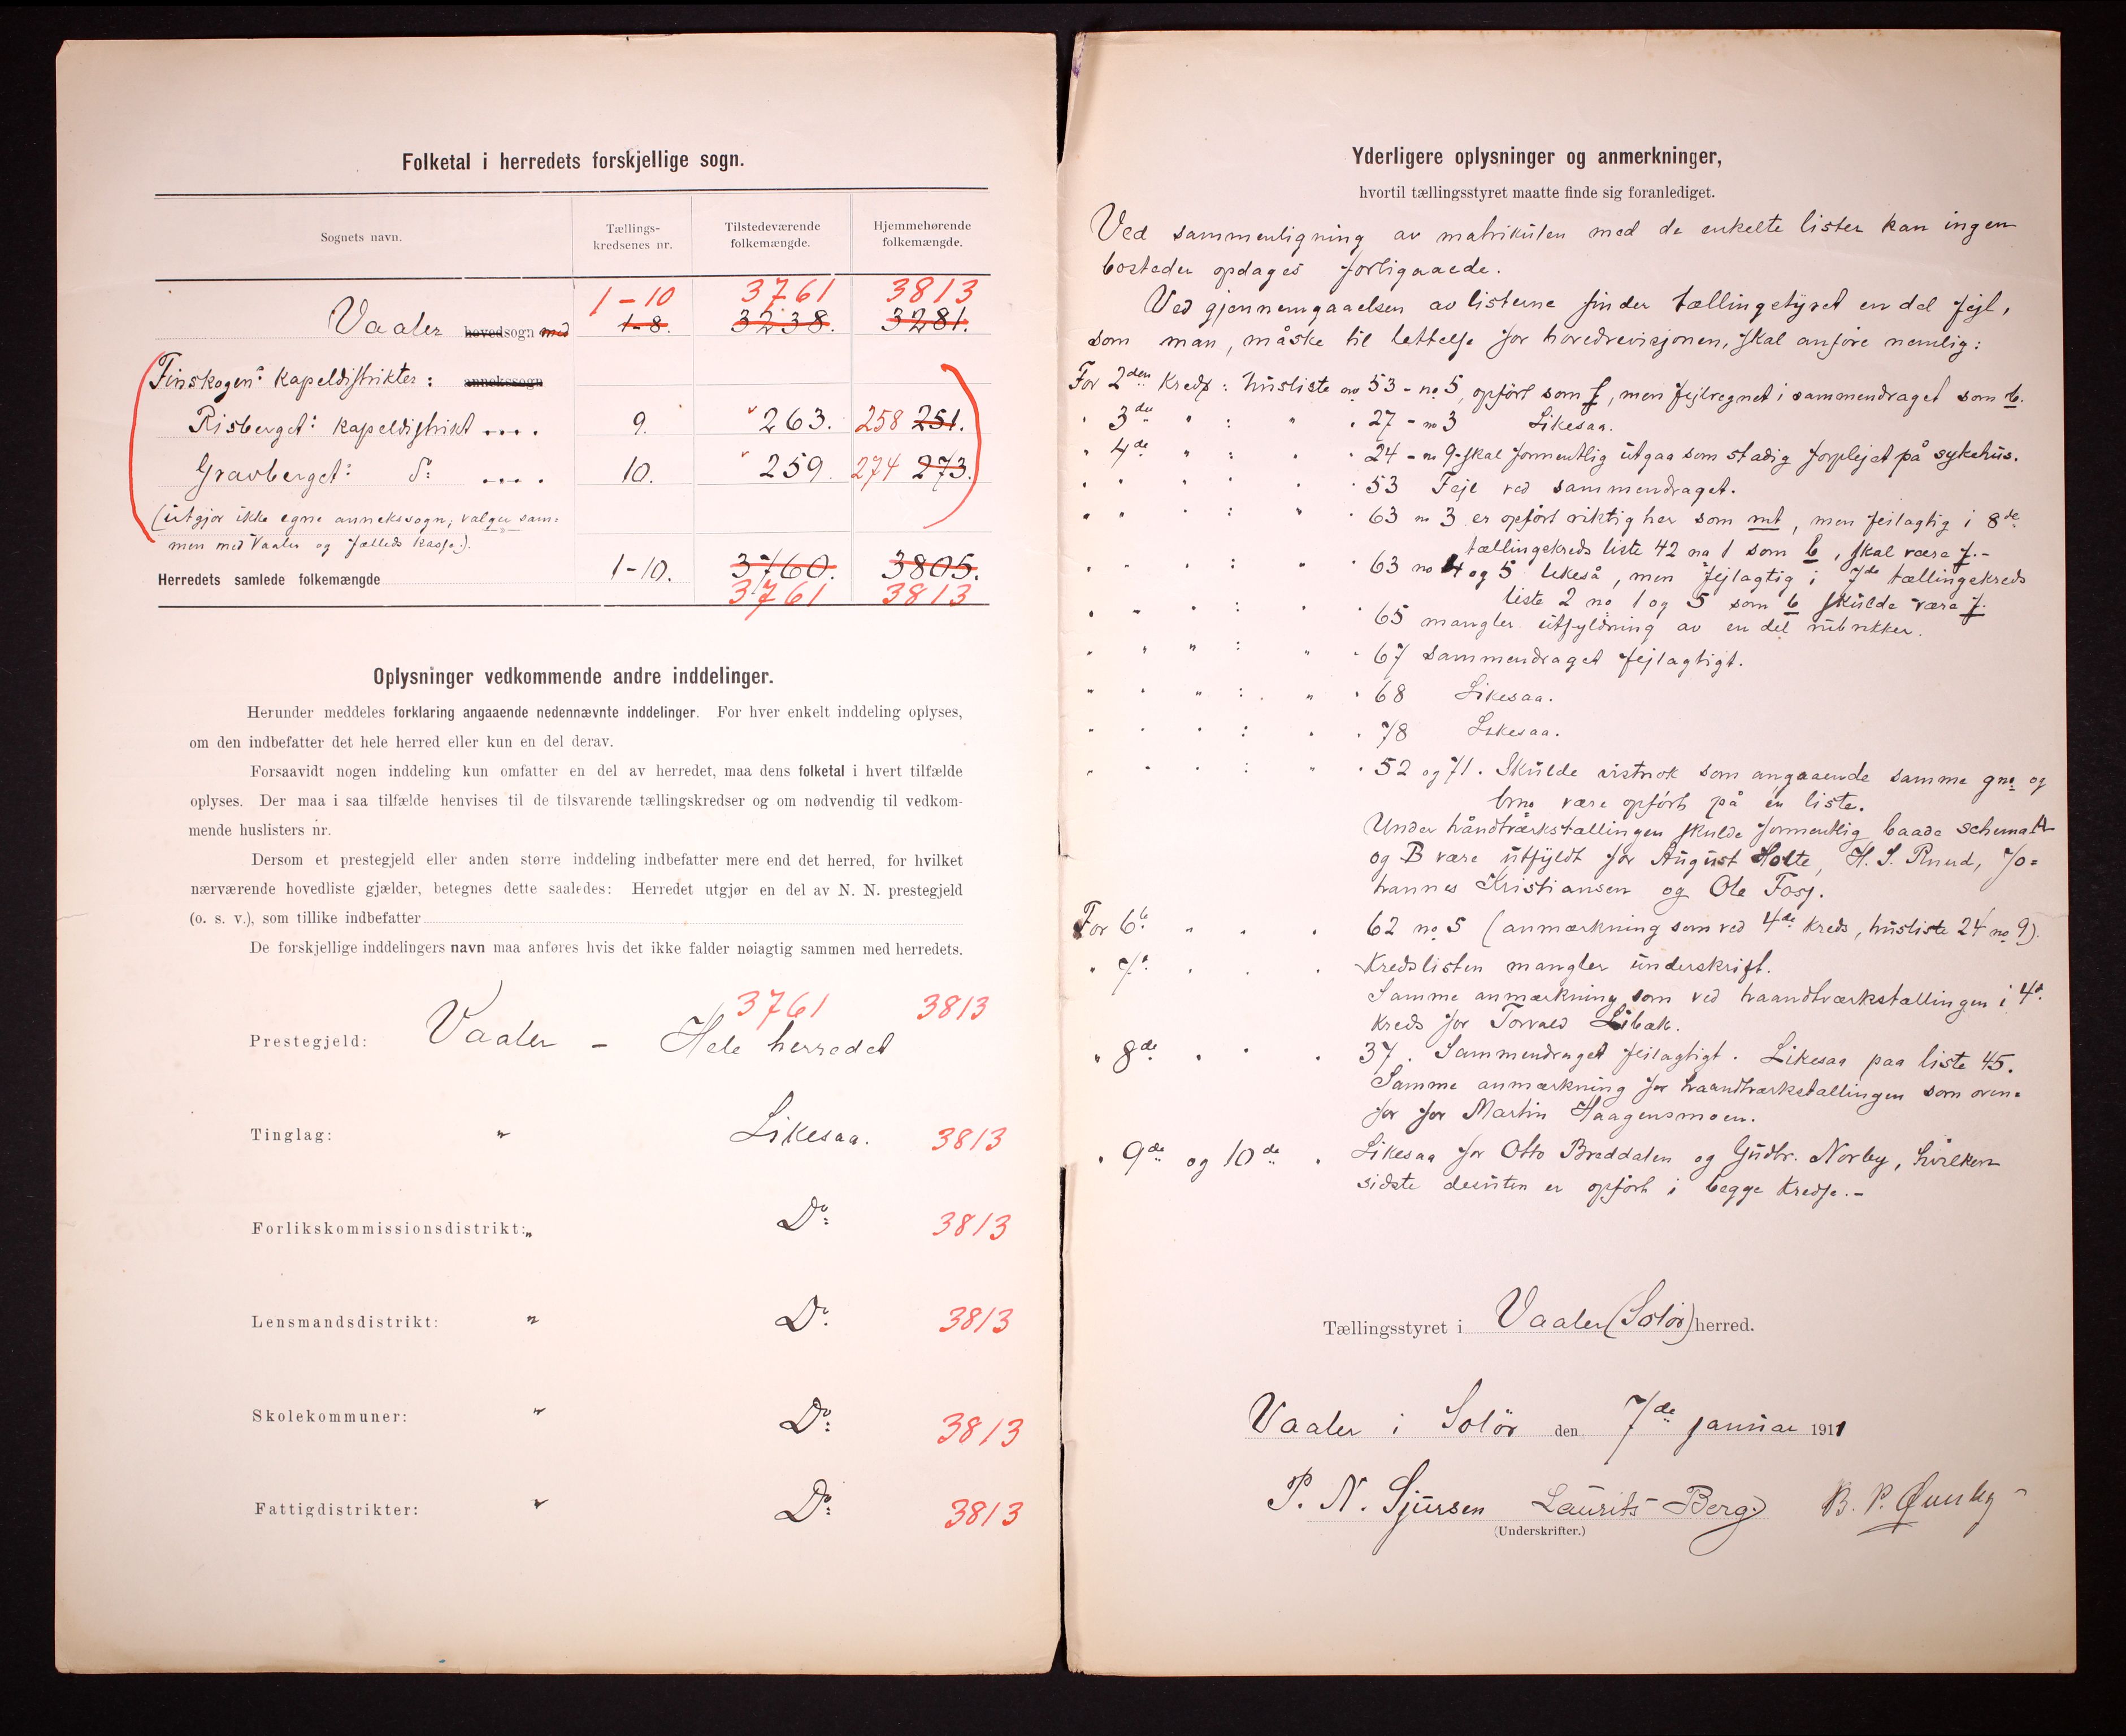 Folketal i herredets forskjellige sogn.
Sognets navn.
Tællings-
kredsenes nr.
Tilstedeværende
folkemængde.
Hjemmehørende
folkemængde.
1-10 3761 3813
Vaaler hovedsogn med 1-8. 3238. 3281.
Finskogens kapeldistrikter: annekssogn
Risberget: kapeldistrikt .... 9. 263. 258 251.
Gravberget: do: .... 10. 259. 274 273.
(utgjør ikke egne annekssogn; valger sam-
men med Vaaler og fælleds kasse.).
Herredets samlede folkemængde 1-10. 3760. 3805.
3761 3813
Oplysninger vedkommende andre inddelinger.
Herunder meddeles forklaring angaaende nedennævnte inddelinger. For hver enkelt inddeling oplyses,
om den indbefatter det hele herred eller kun en del derav.
Forsaavidt nogen inddeling kun omfatter en del av herredet, maa dens folketal i hvert tilfælde
oplyses. Der maa i saa tilfælde henvises til de tilsvarende tællingskredser og om nødvendig til vedkom-
mende huslisters nr.
Dersom et prestegjeld eller anden større inddeling indbefatter mere end det herred, for hvilket
nærværende hovedliste gjælder, betegnes dette saaledes: Herredet utgjør en del av N. N. prestegjeld
(o. s. v.), som tillike indbefatter
De forskjellige inddelingers navn maa anføres hvis det ikke falder nøiagtig sammen med herredets.
3761 3813
Prestegjeld: Vaaler - Hele herredet
Tinglag: " Likesaa. 3813
Forlikskommissionsdistrikt: " Do: 3813
Lensmandsdistrikt: " Do: 3813
Skolekommuner: " Do: 3813
Fattigdistrikter: " Do: 3813
Yderligere oplysninger og anmerkninger,
hvortil tællingsstyret maatte finde sig foranlediget.
Ved sammenligning av matrikulen med de enkelte lister kan ingen
bosteder opdages forbigaaede.
Ved gjennemgaaelsen av listerne finder tællingstyret en del fejl,
som man, måske til lettelse for hovedrevisjonen, skal anføre nemlig:
For 2den Kreds: husliste no 53 - no 5, opført som f, men fejlregnet i sammendraget som b.
" 3de " : " " 27 - no 3 Likesaa.
" 4de " : " " 24 - no 9 - skal formentlig utgaa som stadig forplejet på sykehus.
" " " : " " 53 Fejl ved sammendraget.
" " " : " " 63 no 3 er opført riktig her som mt, men fejlagtig i 8de
tællingskreds liste 42 no 1 som b, skal være f.-
" " " : " " 63 no 4 og 5 likeså, men fejlagtig i 7de tællingskreds
liste 2 no 1 og 5 som b skulde være f.
" " " : " " 65 mangler utfyldning av en del rubrikker.
" " " : " " 67 sammendraget fejlagtigt.
" " " : " " 68 Likesaa.
" " " : " " 78 Likesaa.
" " " : " " 52 og 71. Skulde vistnok som angaaende samme gno og
bno være opført på én liste.
Under håndtværkstællingen skulde formentlig baade schema A
og B være utfyldt for August Holte, H. S. Ruud, Jo-
hannes Kristiansen og Ole Foss.
For 6te " " " 62 no 5 (anmærkning som ved 4de Kreds, husliste 24 no 9).
" 7de " " " Kredslisten mangler underskrift.
Samme anmærkning som ved haandtværkstællingen i 4de
Kreds for Torvald Libæk.
" 8de " " " 37. Sammendraget fejlagtigt. Likesaa paa liste 45.
Samme anmærkning for haandtværkstællingen som oven-
for for Martin Haagensmoen.
" 9de og 10de " Likesaa for Otto Bræddalen og Gudbr. Norby, hvilken
sidste desuten er opført i begge Kredse.-
Tællingsstyret i Vaaler (Solør) herred.
Vaaler i Solør den 7de januar 1911
P. N. Sjursen Laurits Berg. B. P.
(Underskrifter.)